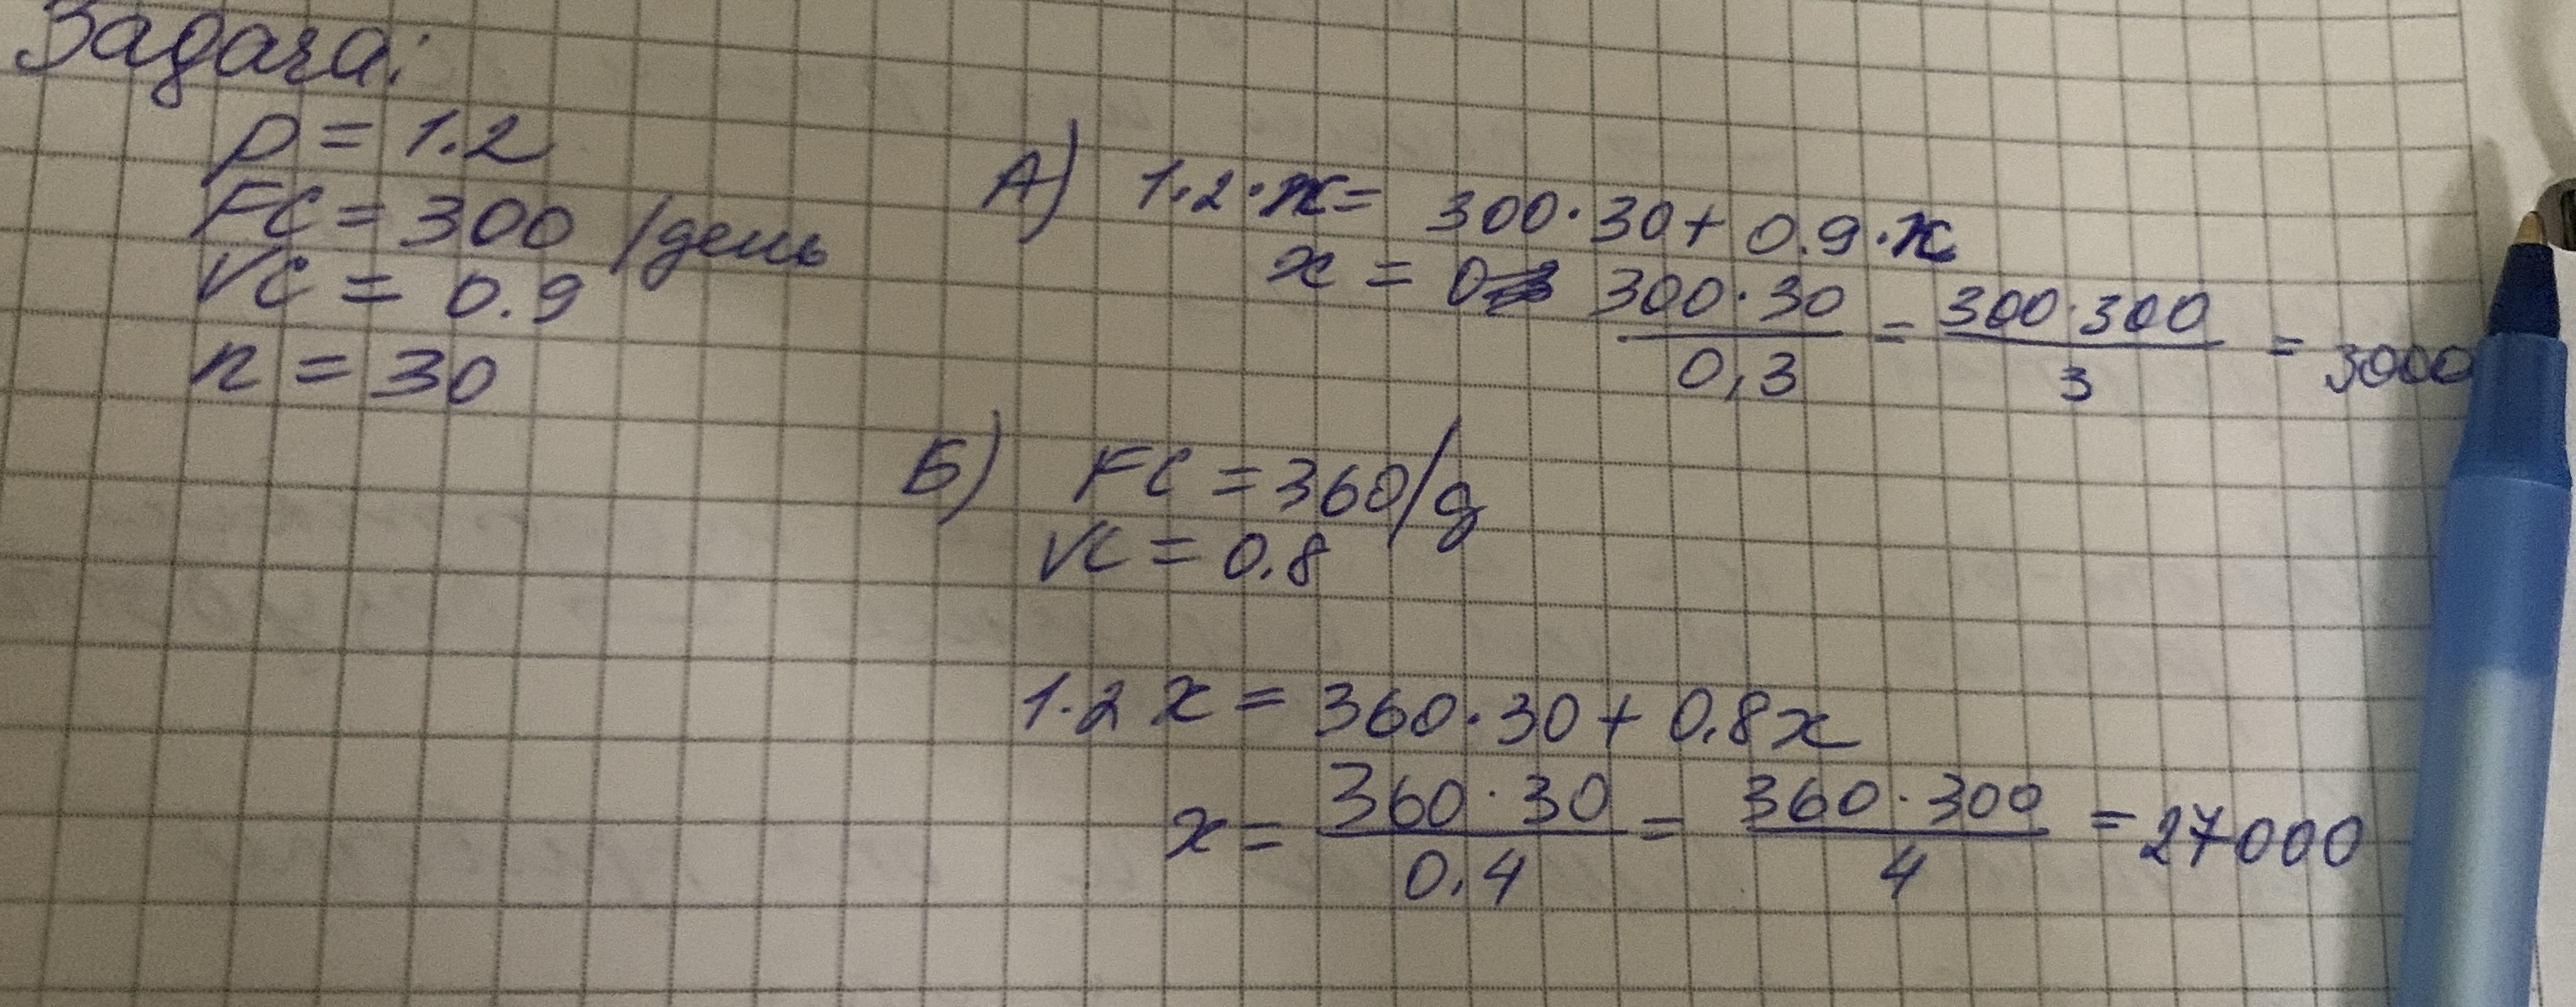 Задача:
p = 1.2
FC = 300 /день
VC = 0.9
n = 30
A) 1.2 · x = 300 · 30 + 0.9 · x
x = 300 · 30 / 0,3 = 300 · 300 / 3 = 3000
Б) FC = 360/д
VC = 0.8
1.2 x = 360 · 30 + 0.8x
x = 360 · 30 / 0.4 = 360 · 300 / 4 = 27000